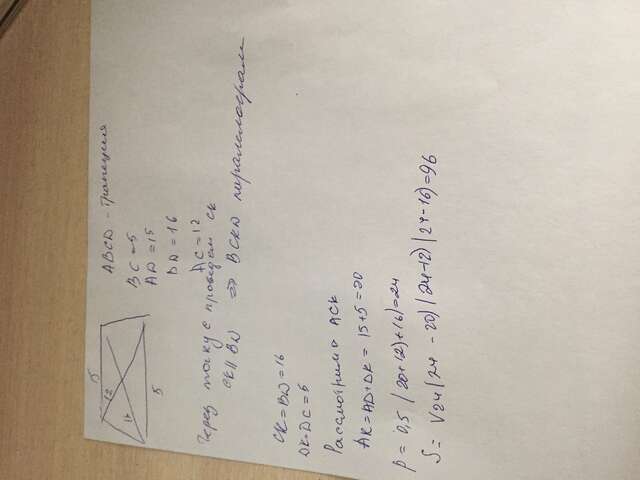 15
12
16
5
ABCD - трапеция
BC = 5
AD = 15
BD = 16
AC = 12
Через точку C проведем CK
CK || BD => BCKD паралелограм
CK = BD = 16
DK = DC = 5
Рассмотрим ACK
AK = AD + DK = 15 + 5 = 20
P = 0,5 (20+12)+16)=24
S = √24(24 - 20)(24-12)(24-16)=96